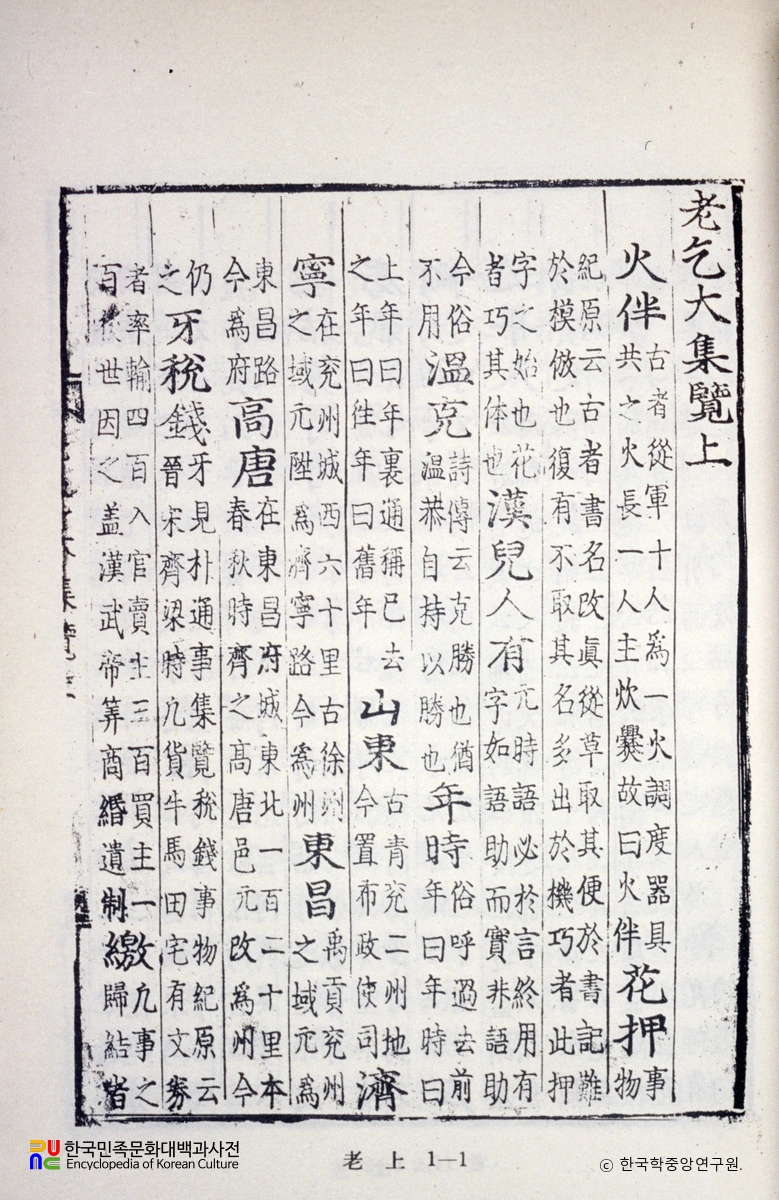 老乞大集覽上
火伴古者從軍十人為一火調度器具共之火長一人主炊爨故曰火伴花押事物
紀原云古者書名改眞從草取其便於書記難於模倣也復有不取其名多出於機巧者此押
字之始也花者巧其体也漢兒人有元時語必於言終用有字如語助而實非語助
今俗不用溫克詩傳云克勝也猶溫恭自持以勝也年時俗呼過去前年曰年時曰
上年曰年裏通稱已去之年曰徃年曰舊年山東古青兖二州地今置布政使司濟
寧在兖州城西六十里古徐州之域元陞為濟寧路今為州東昌禹貢兖州之域元為
東昌路今為府高唐在東昌府城東北一百二十里本春秋時齊之高唐邑元改為州今
仍之牙稅錢牙見朴通事集覽稅錢事物紀原云晉宋齊梁時凢貨牛馬田宅有文券
者率輸四百入官賣主三百買主一百後世因之盖漢武帝筭商緡遺制繳凢事之歸結皆
老 上 1—1
한국민족문화대백과사전
Encyclopedia of Korean Culture
ⓒ 한국학중앙연구원.